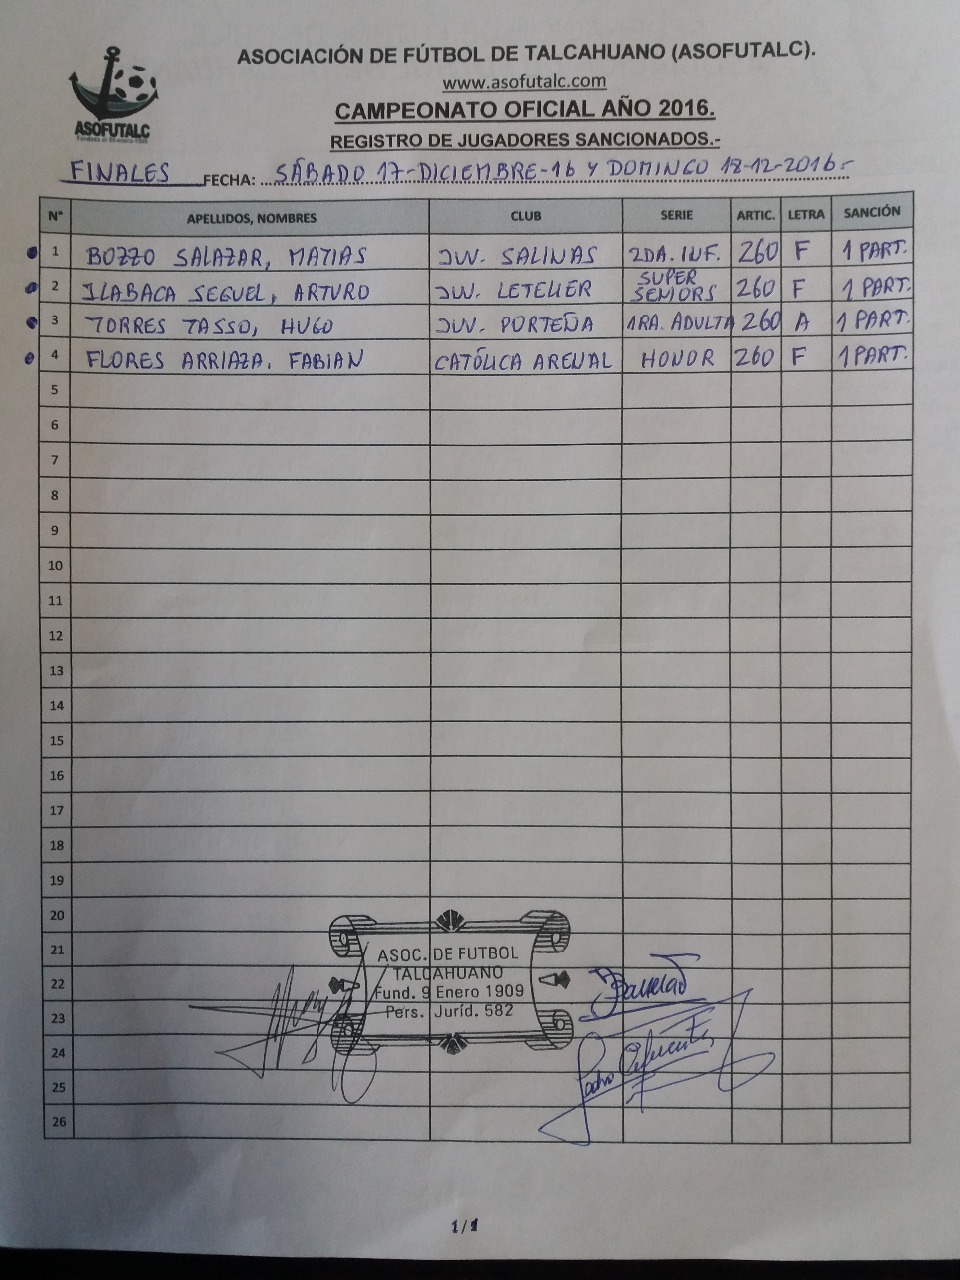 ASOCIACIÓN DE FÚTBOL DE TALCAHUANO (ASOFUTALC).
www.asofutalc.com
CAMPEONATO OFICIAL AÑO 2016.
REGISTRO DE JUGADORES SANCIONADOS.-
ASOFUTALC
FINALES FECHA: SÁBADO 17-DICIEMBRE-16 Y DOMINGO 18-12-2016.-
N° APELLIDOS, NOMBRES CLUB SERIE ARTIC. LETRA SANCIÓN
1 BOZZO SALAZAR, MATIAS JUV. SALINAS 2DA. INF. 260 F 1 PART.
2 ILABACA SEGUEL, ARTURO JUV. LETELIER SUPER SENIORS 260 F 1 PART.
3 TORRES TASSO, HUGO JUV. PORTEÑA 1RA. ADULTA 260 A 1 PART.
4 FLORES ARRIAZA, FABIAN CATÓLICA ARENAL HONOR 260 F 1 PART.
5
6
7
8
9
10
11
12
13
14
15
16
17
18
19
20
21
22
23
24
25
26
ASOC. DE FUTBOL
TALCAHUANO
Fund. 9 Enero 1909
Pers. Juríd. 582
Pedro Cifuentes
1/1